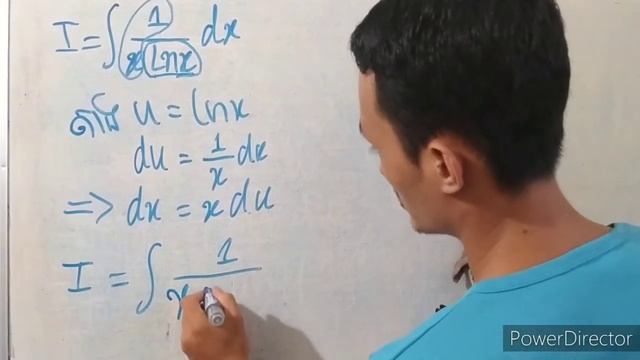 I = ∫ 1/(x lnx) dx
តាង u = lnx
du = 1/x dx
=> dx = x du
I = ∫ 1/x
PowerDirector